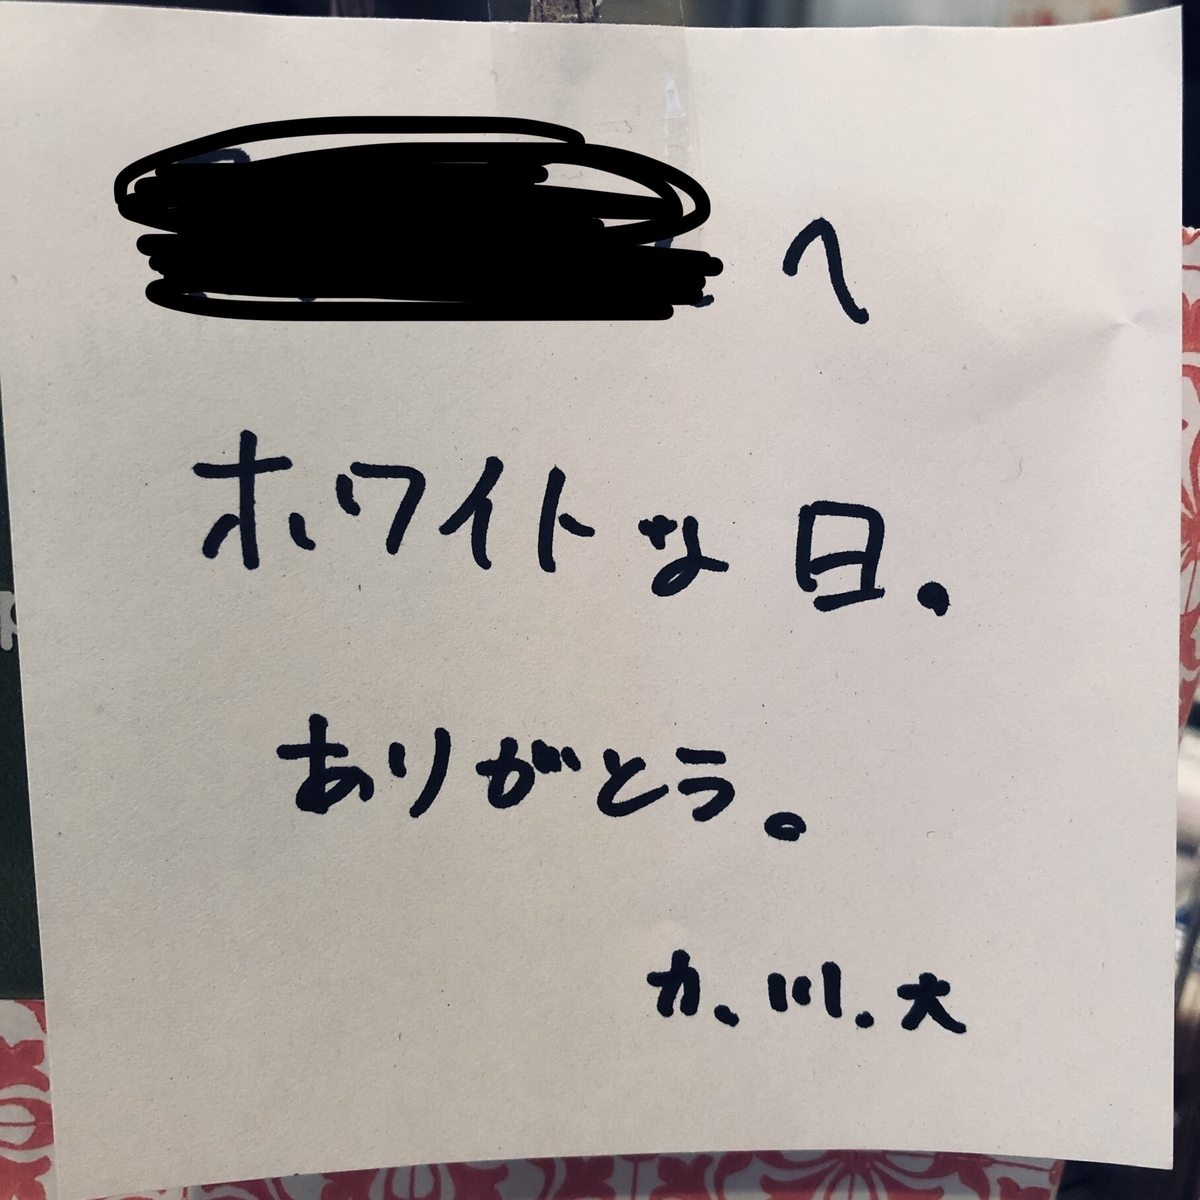 へ
ホワイトな日.
ありがとう。
力、川.大